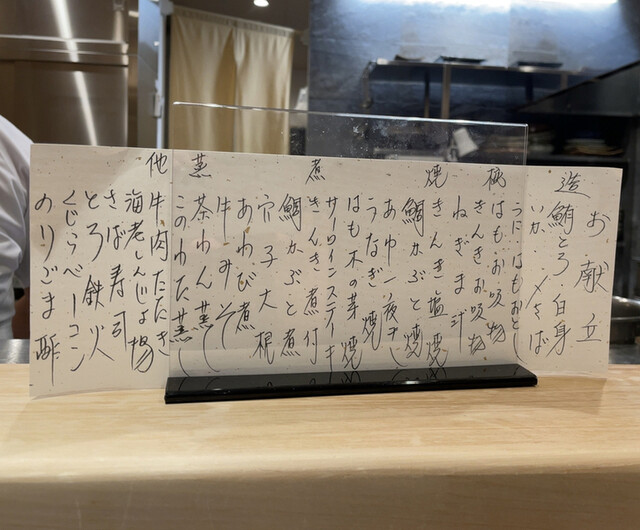 お献立
造
鮪とろ 白身
いか 〆さば
うに はもおとし
椀
はも お吸物
きんき お吸物
ねぎま汁
焼
きんき塩焼
鯛かぶと焼
あゆ一夜干し
うなぎ焼
はも木の芽焼
サーロインステーキ
煮
きんき煮付
鯛かぶと煮
穴子大根
あわび煮
牛みそ
蒸
茶わん蒸し
このわた蒸し
他
牛肉たたき
海老しんじょ揚
さば寿司
とろ鉄火
くじらベーコン
のりごま酢